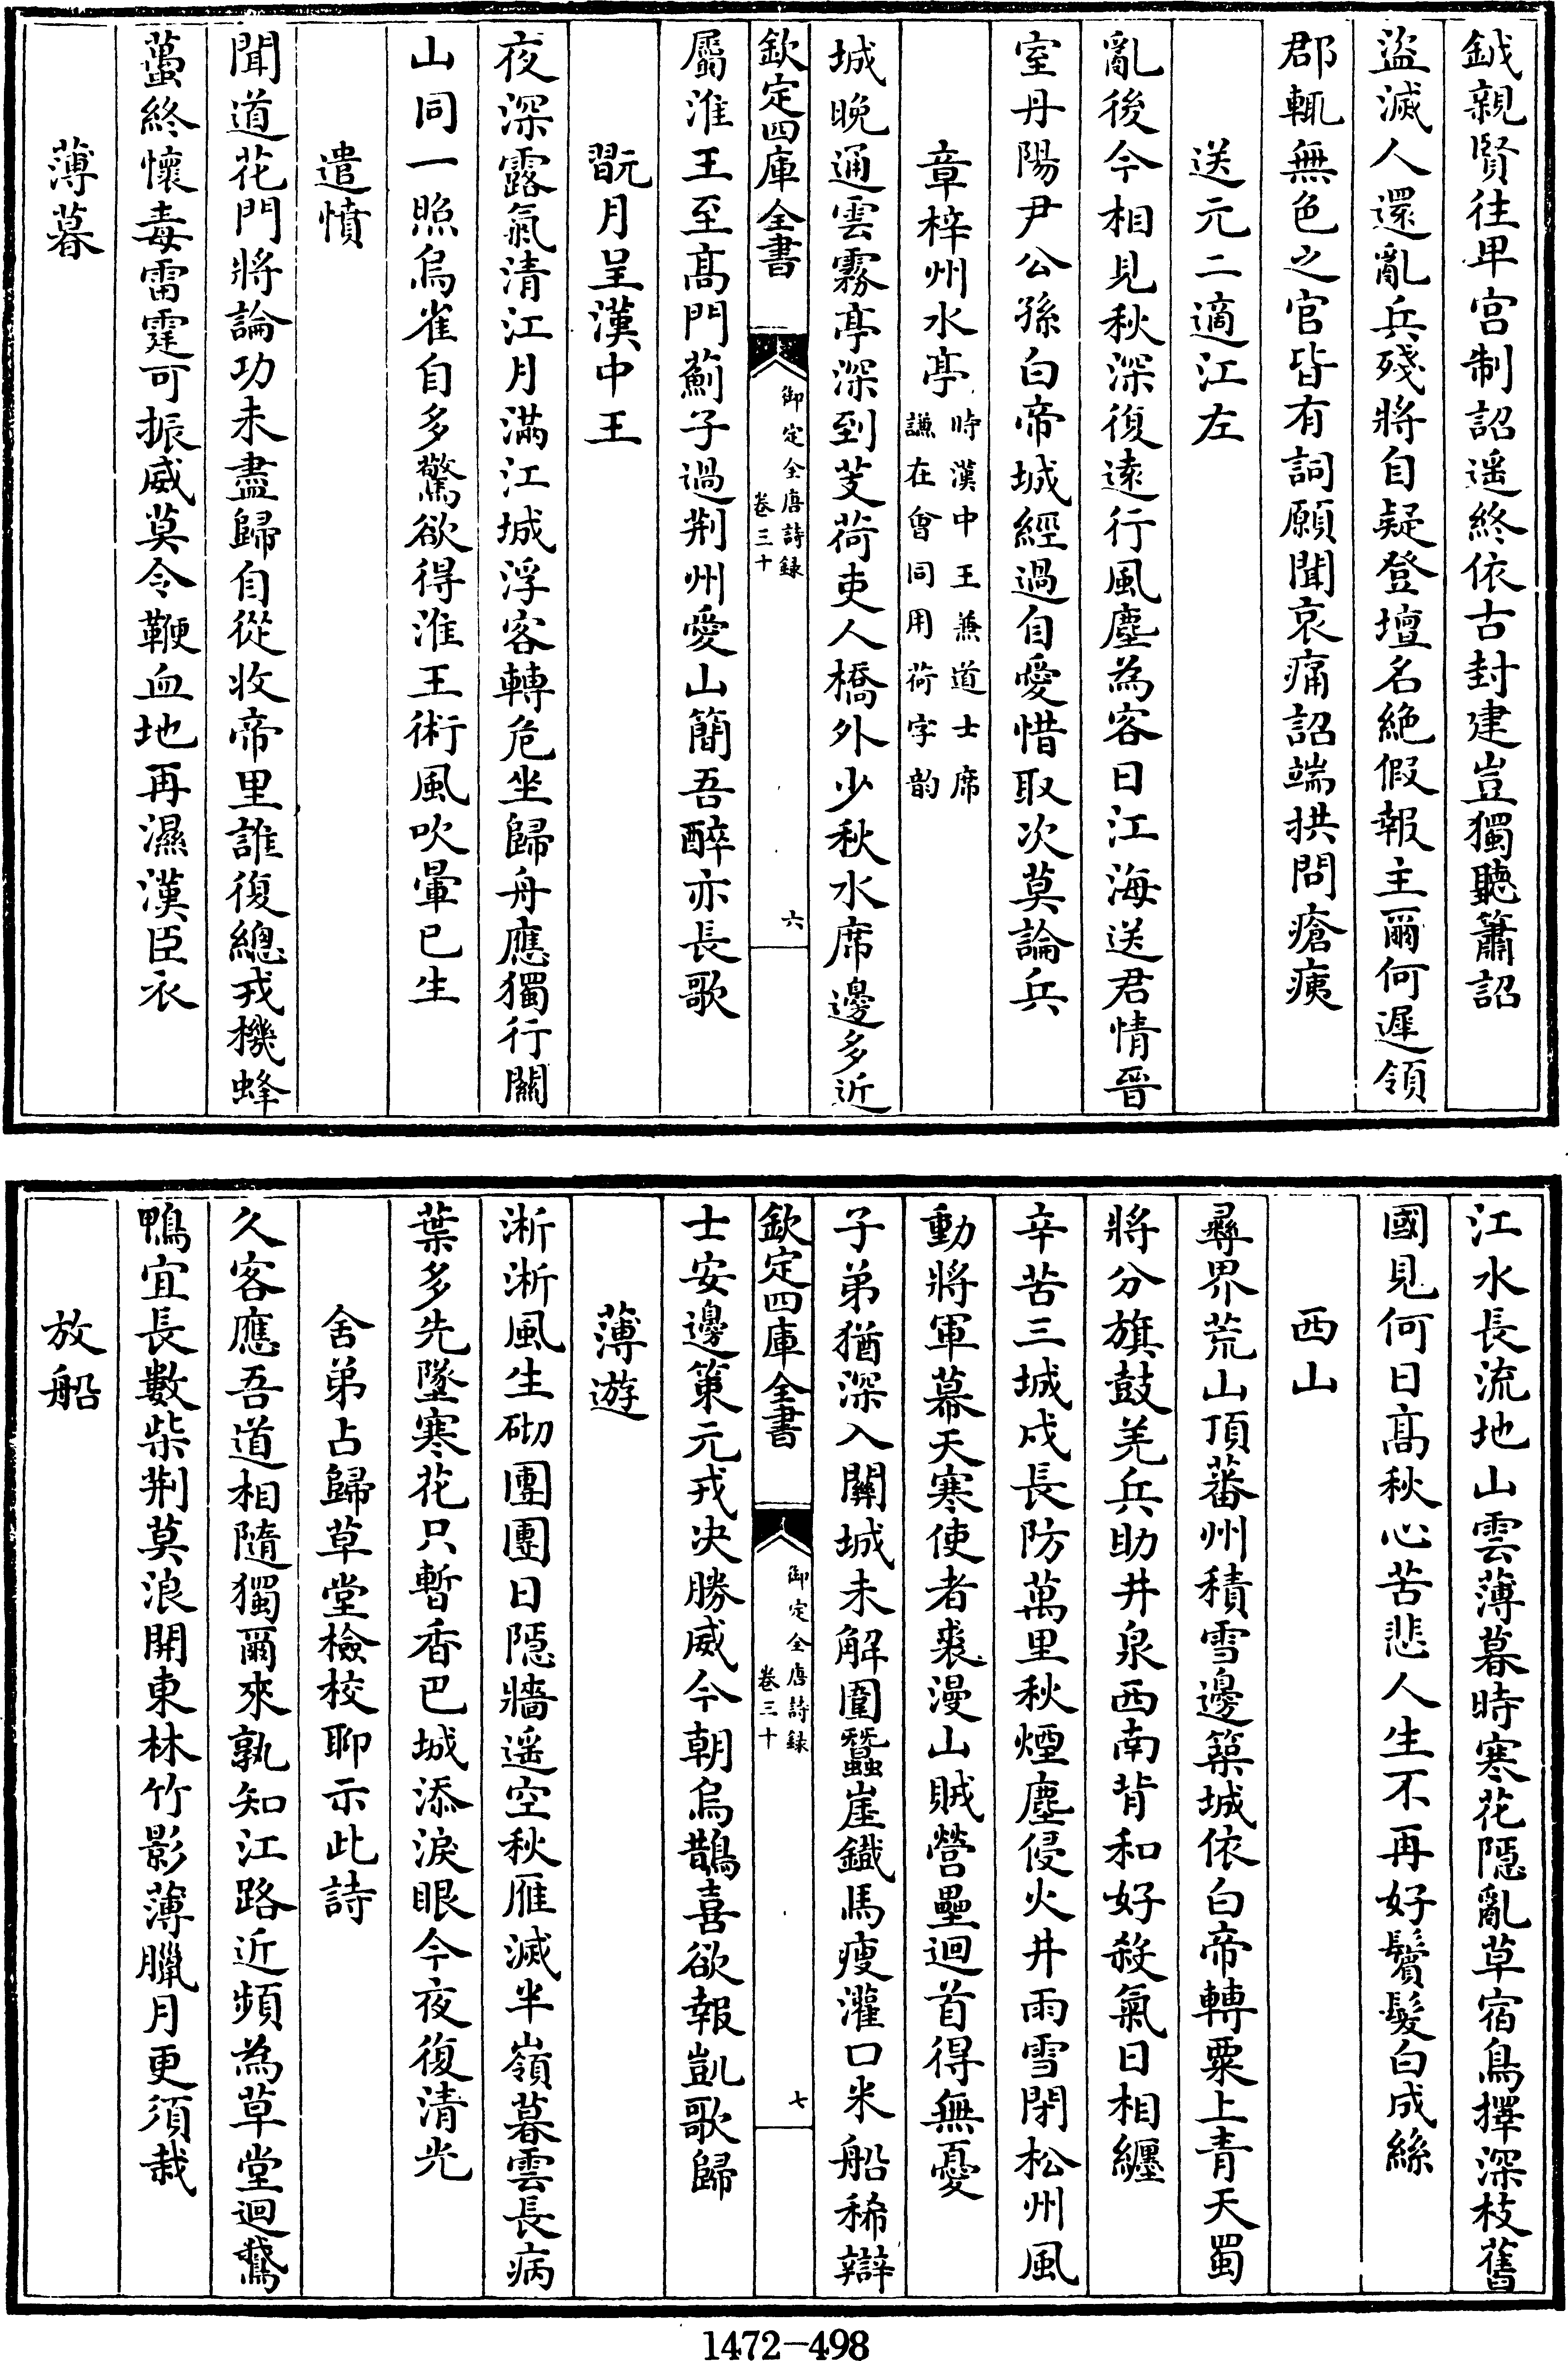 鉞親賢往卑宫制詔遥終依古封建豈獨聽簫詔
盗滅人還亂兵殘將自疑登壇名絶假報主爾何遲領
郡輒無色之官皆有詞願聞哀痛詔端拱問瘡痍
送元二適江左
亂後今相見秋深復逺行風塵為客日江海送君情晉
室丹陽尹公孫白帝城經過自愛惜取次莫論兵
章梓州水亭時漢中王兼道士席
謙在會同用荷字韵
城晚通雲霧亭深到芰荷吏人橋外少秋水席邊多近
欽定四庫全書
御定全唐詩録
卷三十
六
屬淮王至髙門薊子過荆州愛山簡吾醉亦長歌
翫月呈漢中王
夜深露氣清江月滿江城浮客轉危坐歸舟應獨行關
山同一照烏雀自多驚欲得淮王術風吹暈已生
遣憤
聞道花門將論功未盡歸自從收帝里誰復總戎機蜂
蠆終懷毒雷霆可振威莫令鞭血地再濕漢臣衣
薄暮
江水長流地山雲薄暮時寒花隠亂草宿鳥擇深枝舊
國見何日髙秋心苦悲人生不再好鬢髮白成絲
西山
彞界荒山頂蕃州積雪邊築城依白帝轉粟上青天蜀
將分旗鼓羌兵助井泉西南背和好殺氣日相纏
辛苦三城戍長防萬里秋煙塵侵火井雨雪閉松州風
動將軍幕天寒使者裘漫山賊營壘迴首得無憂
子弟猶深入關城未解圍蠶崖鐡馬瘦灌口米船稀辯
欽定四庫全書
御定全唐詩録
卷三十
七
士安邊策元戎决勝威今朝烏鵲喜欲報凱歌歸
薄遊
淅淅風生砌團團日隠牆遥空秋雁滅半嶺暮雲長病
葉多先墜寒花只暫香巴城添淚眼今夜復清光
舍弟占歸草堂檢校聊示此詩
久客應吾道相隨獨爾來孰知江路近頻為草堂迴鵞
鴨宜長數柴荆莫浪開東林竹影薄臘月更須栽
放船
1472-498